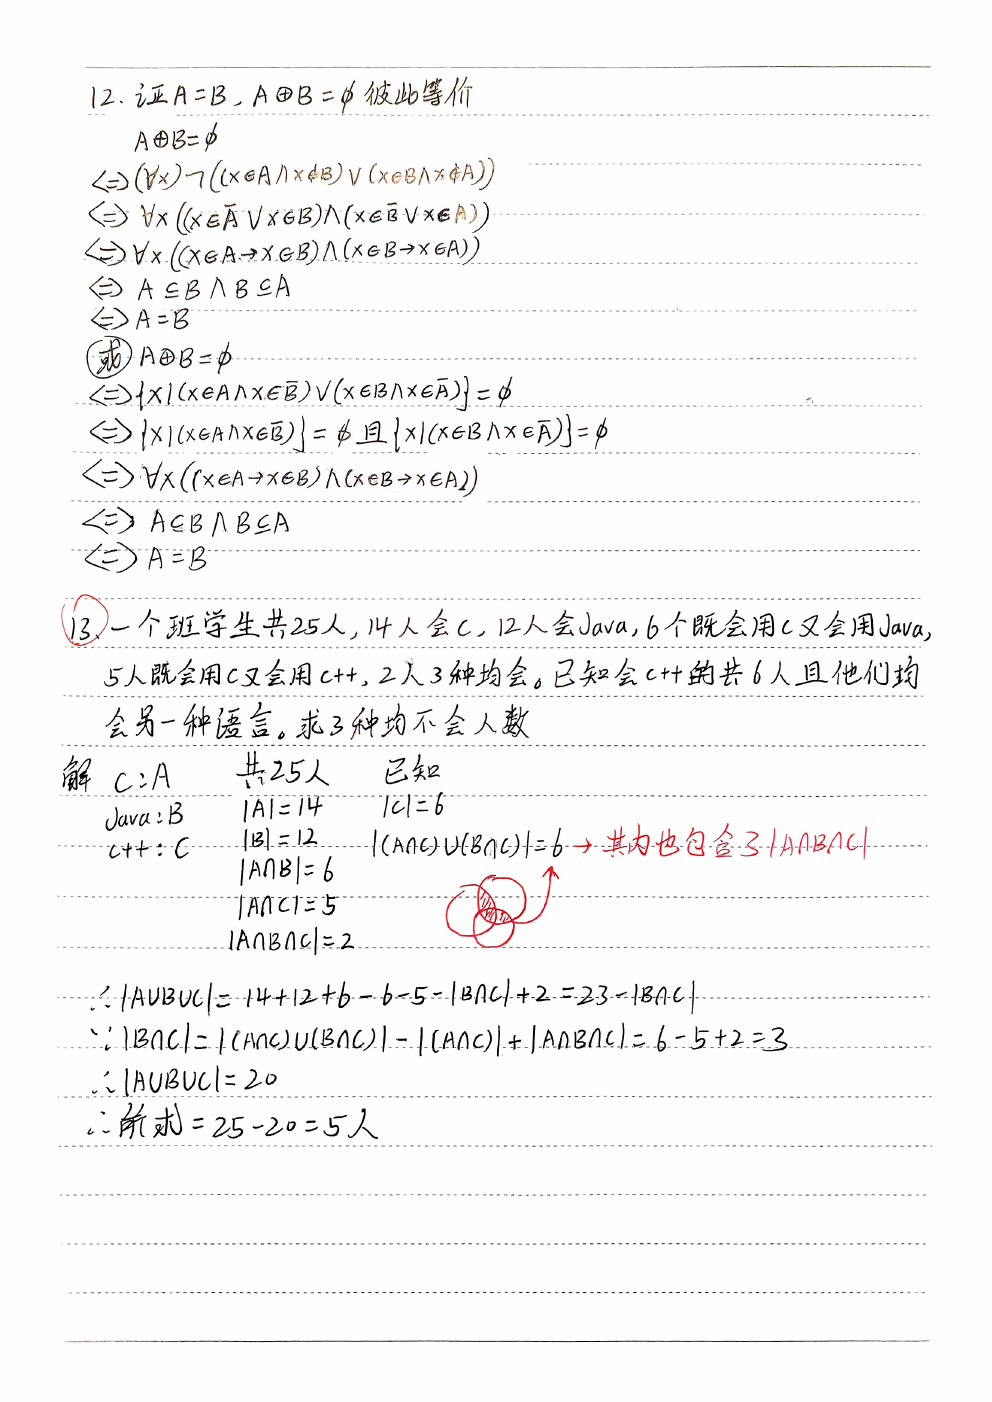 12. 证A=B, A⊕B=φ 彼此等价
A⊕B=φ
<=>(∀x)¬((x∈A∧x∉B)∨(x∈B∧x∉A))
<=> ∀x((x∈Ā∨x∈B)∧(x∈B̄∨x∈A))
<=> ∀x((x∈A→x∈B)∧(x∈B→x∈A))
<=> A⊆B∧B⊆A
<=> A=B
或 A⊕B=φ
<=>{x|(x∈A∧x∈B̄)∨(x∈B∧x∈Ā)}=φ
<=> {x|(x∈A∧x∈B̄)}=φ 且{x|(x∈B∧x∈Ā)}=φ
<=> ∀x((x∈A→x∈B)∧(x∈B→x∈A))
<=> A⊆B∧B⊆A
<=> A=B
13、一个班学生共25人, 14人会C, 12人会Java, 6个既会用C又会用Java,
5人既会用C又会用C++, 2人3种均会。已知会C++的共6人且他们均
会另一种语言。求3种均不会人数
解 C:A 共25人 已知
Java:B |A|=14 |C|=6
C++:C |B|=12 |(A∩C)∪(B∩C)|=6 → 其内也包含了|A∩B∩C|
|A∩B|=6
|A∩C|=5
|A∩B∩C|=2
∴|A∪B∪C|=14+12+6-6-5-|B∩C|+2=23-|B∩C|
∵|B∩C|=|(A∩C)∪(B∩C)|-|(A∩C)|+|A∩B∩C|=6-5+2=3
∴|A∪B∪C|=20
∴所求=25-20=5人